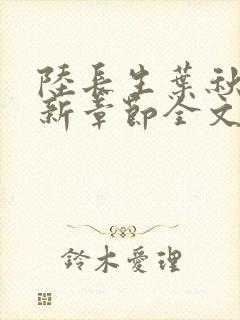 陸長生葉秋
新章節全文
鈴木愛理